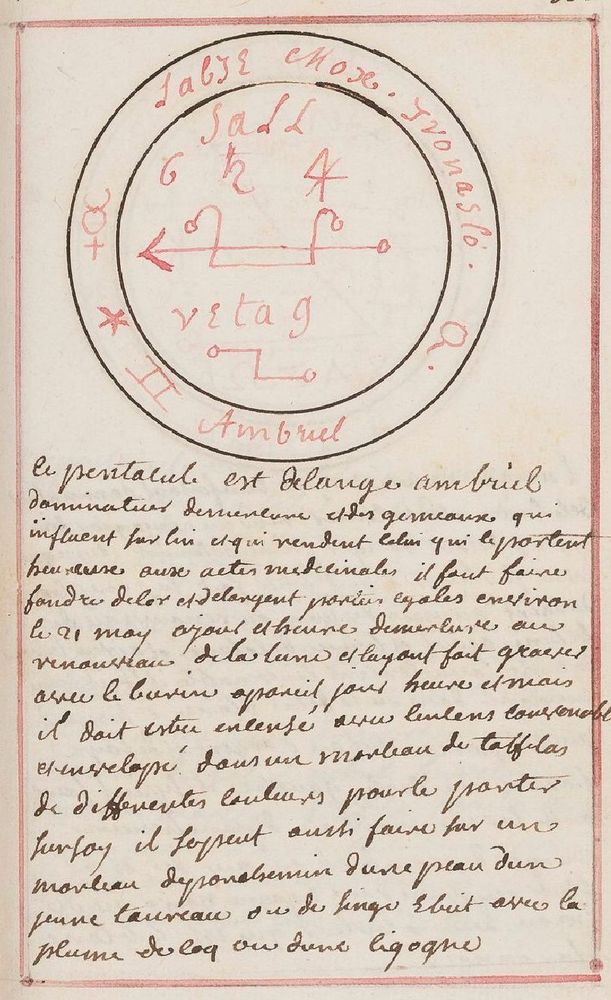 Ambriel
ce pentacule est delange ambriel
dominateur demercure et des gemeaux qui
influent sur lui et qui rendent celui qui le portent
heureuse aux actes medecinales il faut faire
fondre delor et delargent parties egales environ
le 21 may ajour et heure demercure au
renouveau de la lune et layant fait graver
avec le burin apareil jour heure et mais
il doit estre encensé avec lenlens convenable
et envelopé dans un morleau de taffetas
de differentes couleurs pour le porter
sursoy il sepeut aussi faire sur un
morleau deparchemin dune peau dun
jeune taureau ou de singe avec la
plume de coq ou dune cigogne